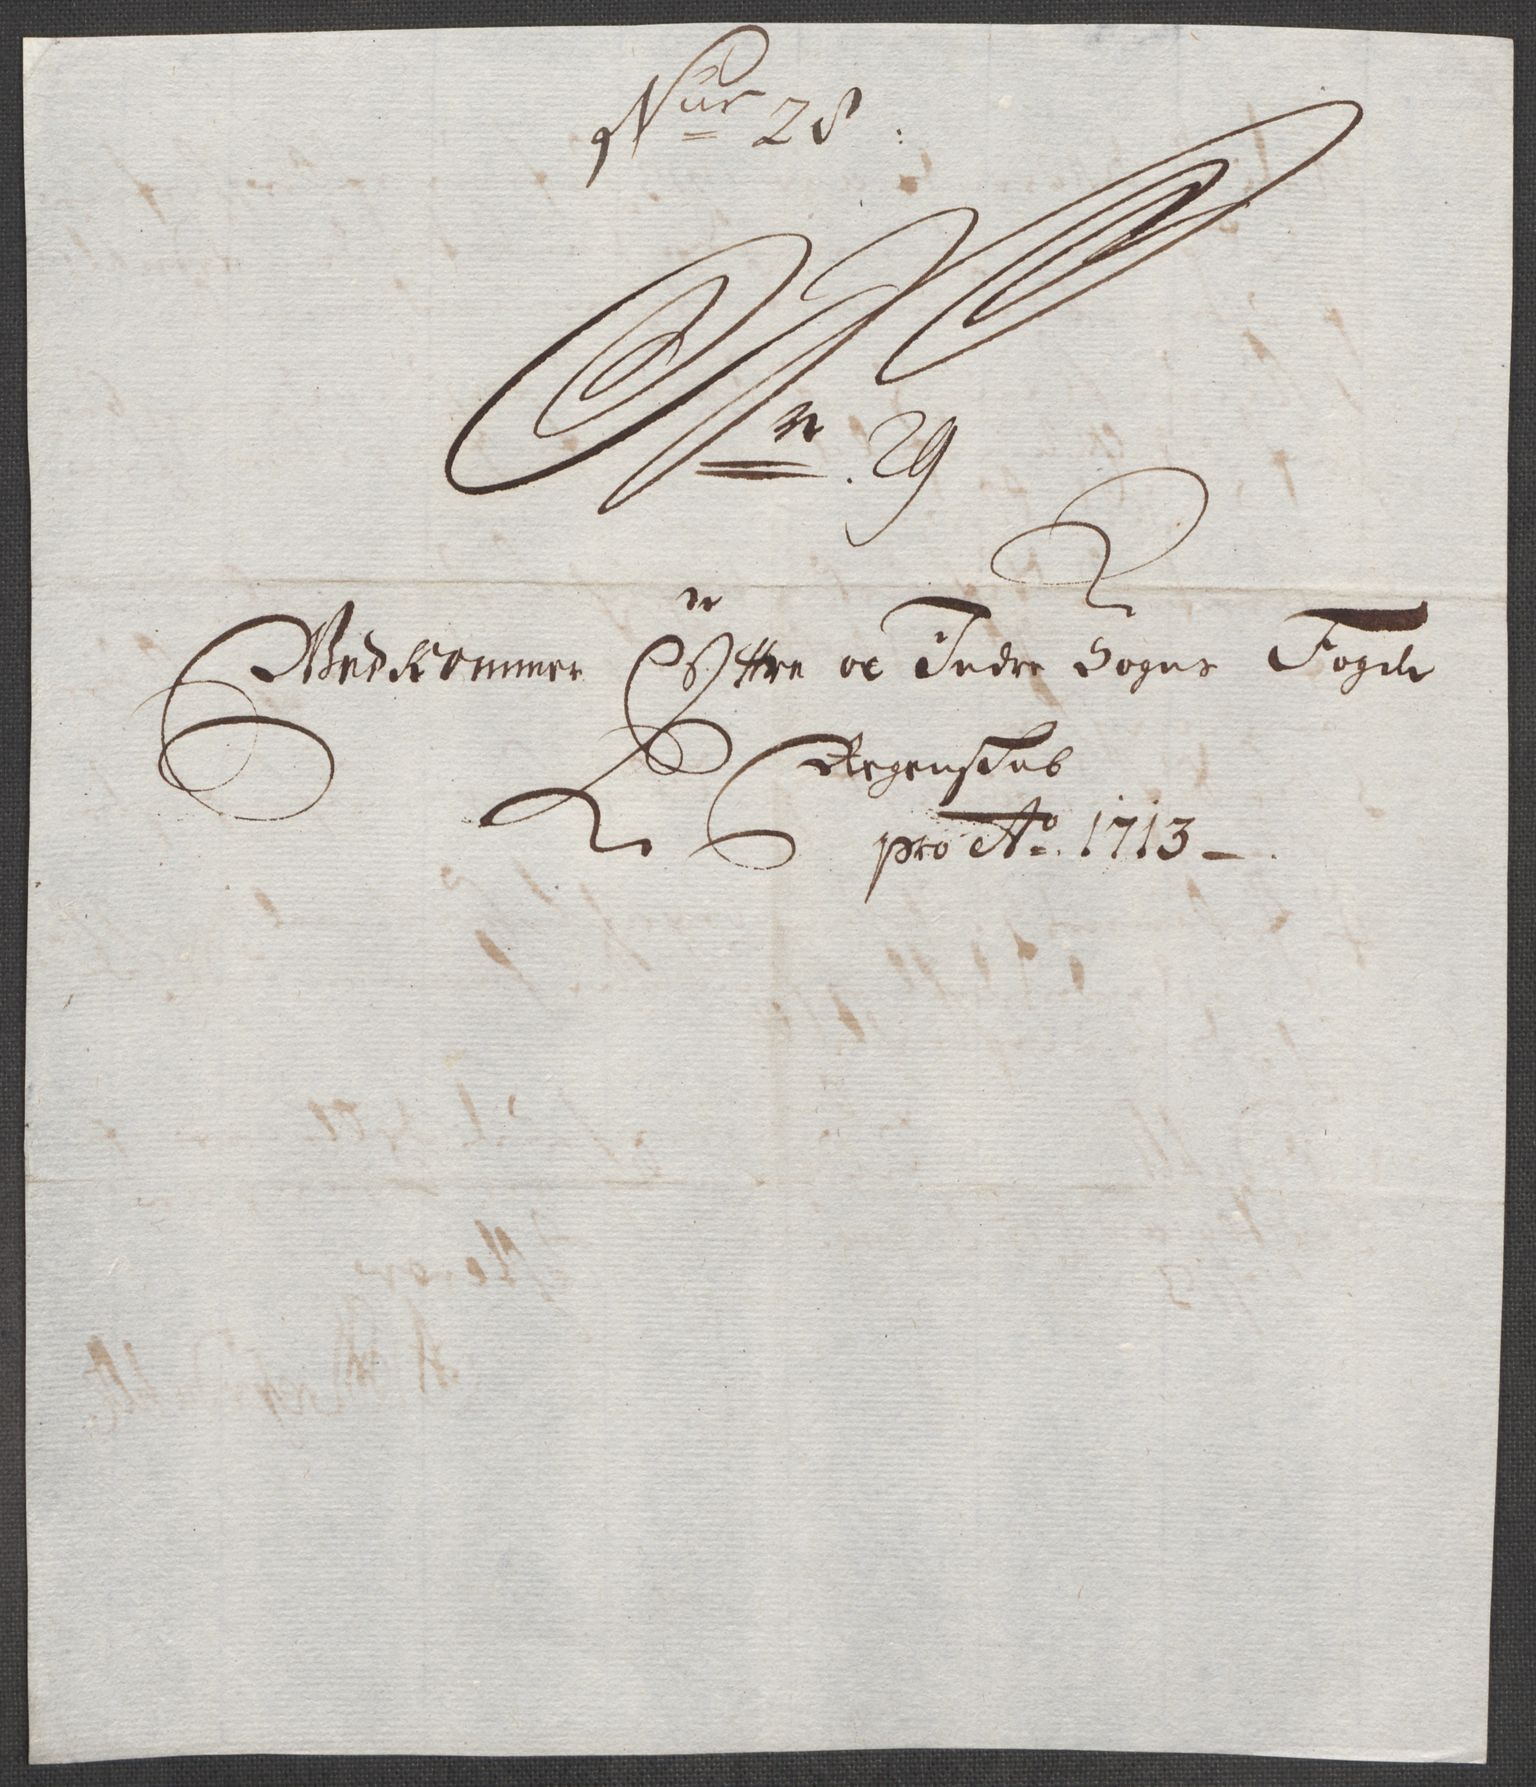 Nur 28:
N. 29
Vedkommer Yttre oc Indre Sogns Fogde
Regenskab
pro Ao. 1713